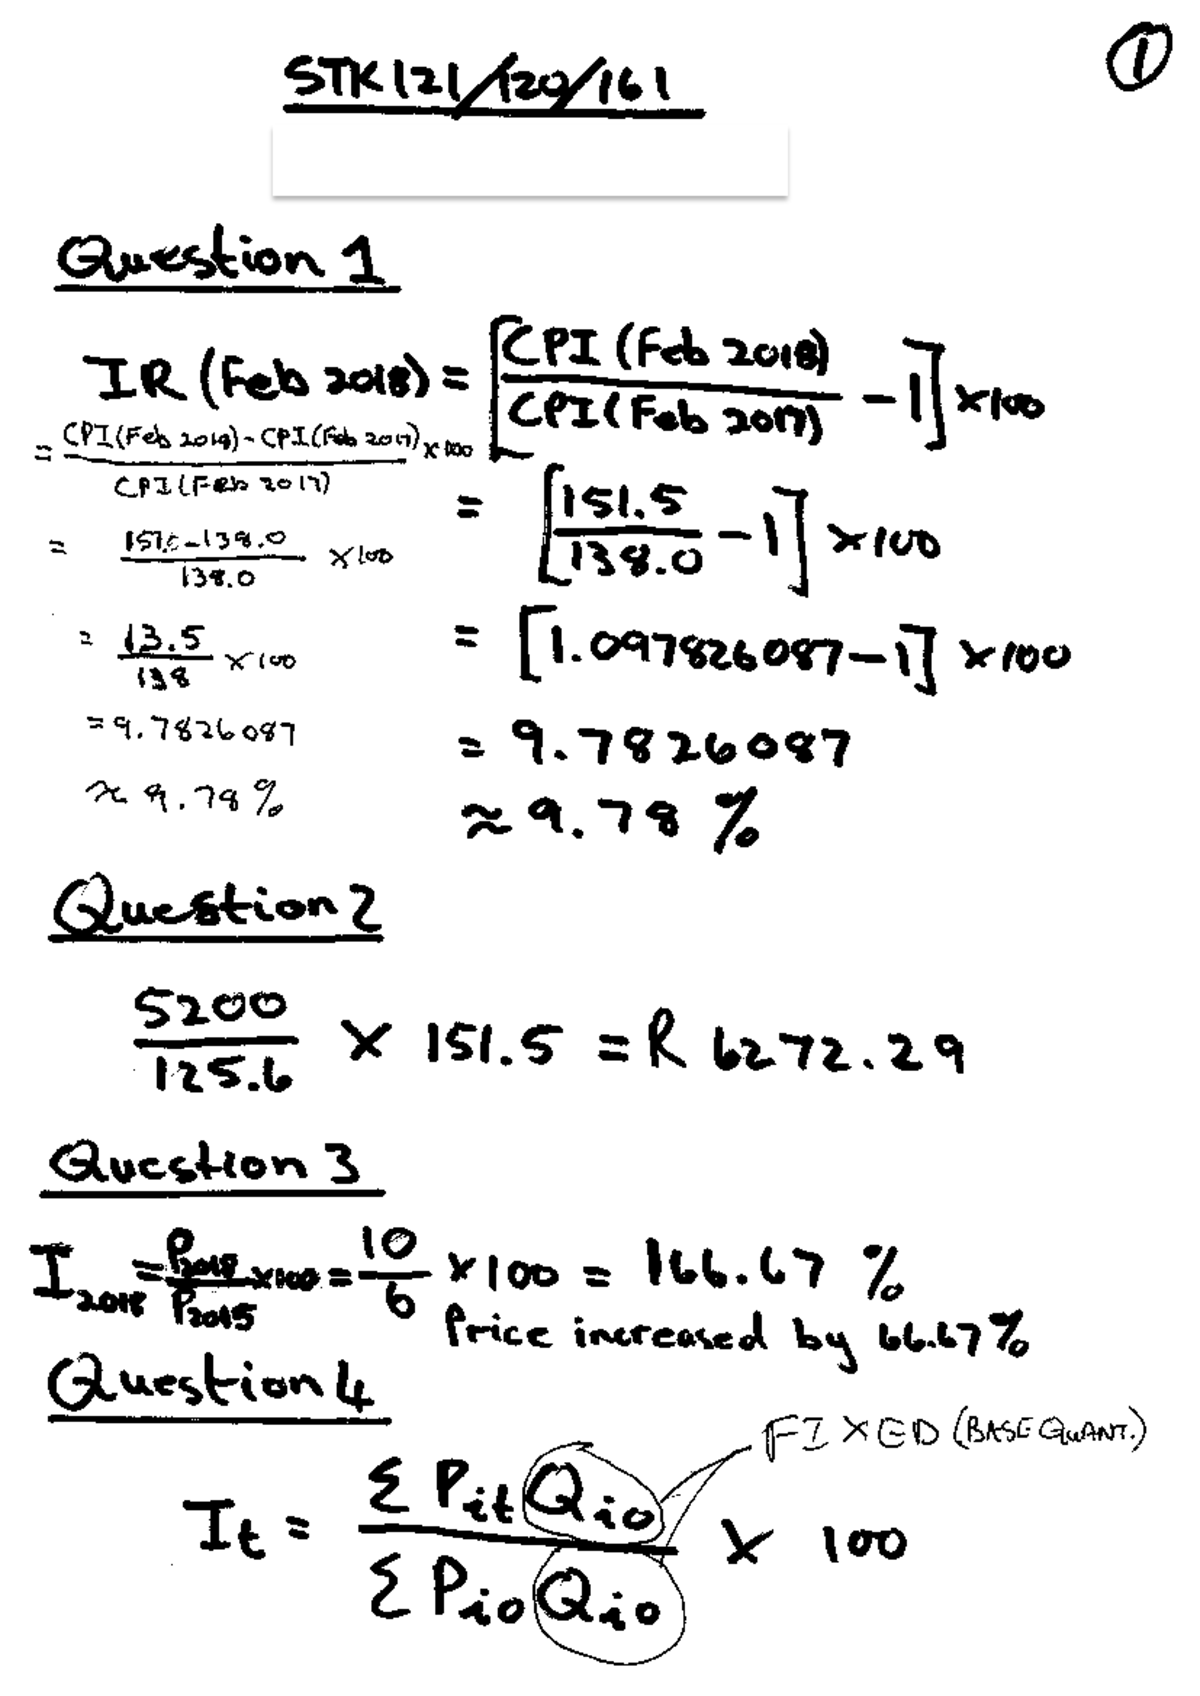 ①
STK121/120/161
Question 1
IR (Feb 2018) = [CPI (Feb 2018) / CPI (Feb 2017) - 1] × 100
= CPI (Feb 2018) - CPI (Feb 2017) / CPI (Feb 2017) × 100
= [151.5 / 138.0 - 1] × 100
= 151.5 - 138.0 / 138.0 × 100
= [1.097826087 - 1] × 100
= 13.5 / 138 × 100
= 9.7826087
= 9.7826087
≈ 9.78 %
≈ 9.78 %
Question 2
5200 / 125.6 × 151.5 = R 6272.29
Question 3
I2018 = P2018 / P2015 × 100 = 10 / 6 × 100 = 166.67 %
Price increased by 66.67 %
Question 4
FIXED (BASE QUANT.)
It = Σ Pit Qio / Σ Pio Qio × 100